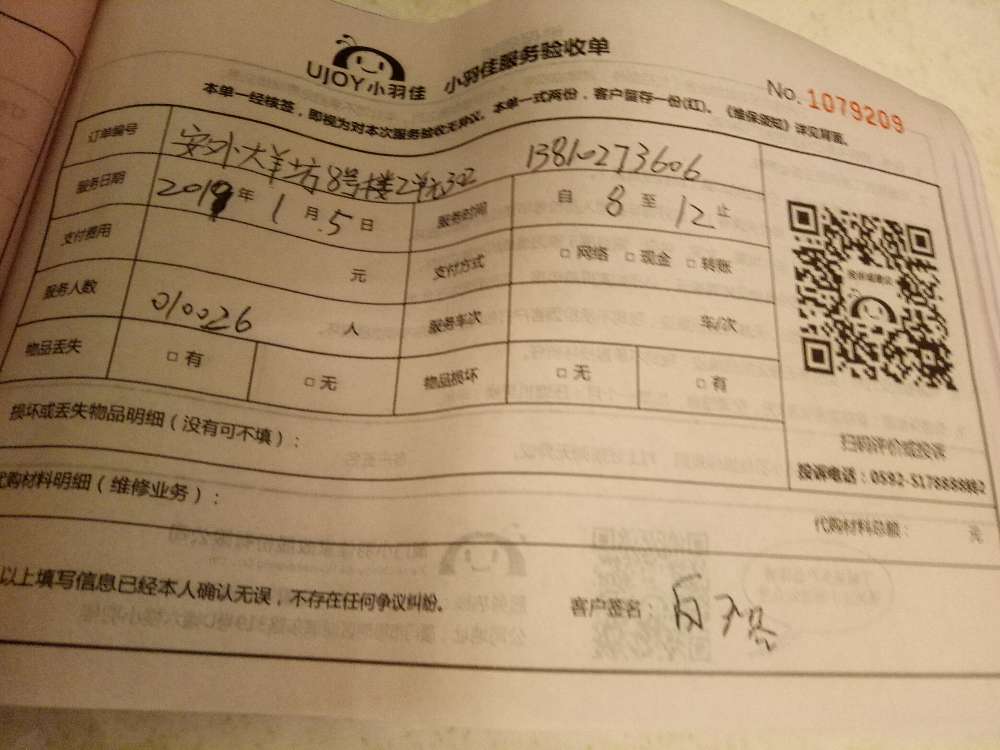 UJOY小羽佳 小羽佳服务验收单
No. 1079209
本单一经核签，即视为对本次服务验收无异议。本单一式两份，客户留存一份(红)。《维保须知》详见背面。
订单编号 安外大羊坊8号楼2单元302 13810273606
服务日期 2019年1月5日 服务时间 自8至12止
支付费用 元 支付方式 □ 网络 □ 现金 □ 转账
服务人数 010026 人 服务车次 车/次
物品丢失 □ 有 □ 无 物品损坏 □ 无 □ 有
损坏或丢失物品明细（没有可不填）：
扫码评价或投诉
投诉电话：0592-5178888转2
代购材料明细（维修业务）： 代购材料总额： 元
以上填写信息已经本人确认无误，不存在任何争议纠纷。 客户签名：